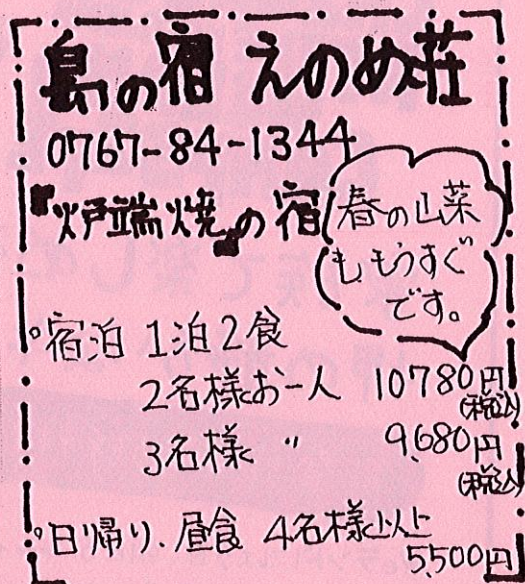 島の宿 えのめ荘
0767-84-1344
『炉端焼』の宿
春の山菜
も、もうすぐ
です。
○宿泊 1泊2食
2名様お一人 10780円
(税込)
3名様 〃 9,680円
(税込)
○日帰り、昼食 4名様以上
5,500円